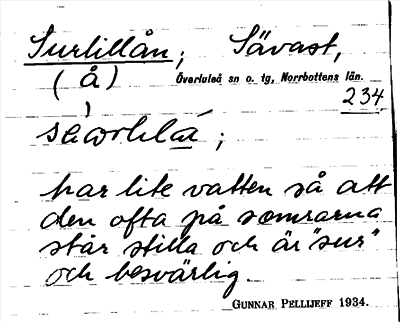 Surlillån; Sävast,
(å) Överluleå sn o. tg, Norrbottens län.
234
har lite vatten så att
den ofta på somrarna
står stilla och är "sur"
och besvärlig.
GUNNAR PELLIJEFF 1934.